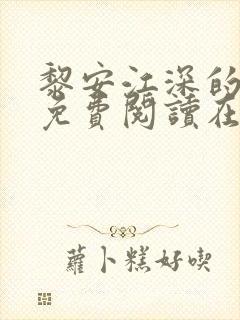 黎安江深的
免費閱讀在
蘿卜糕好喫